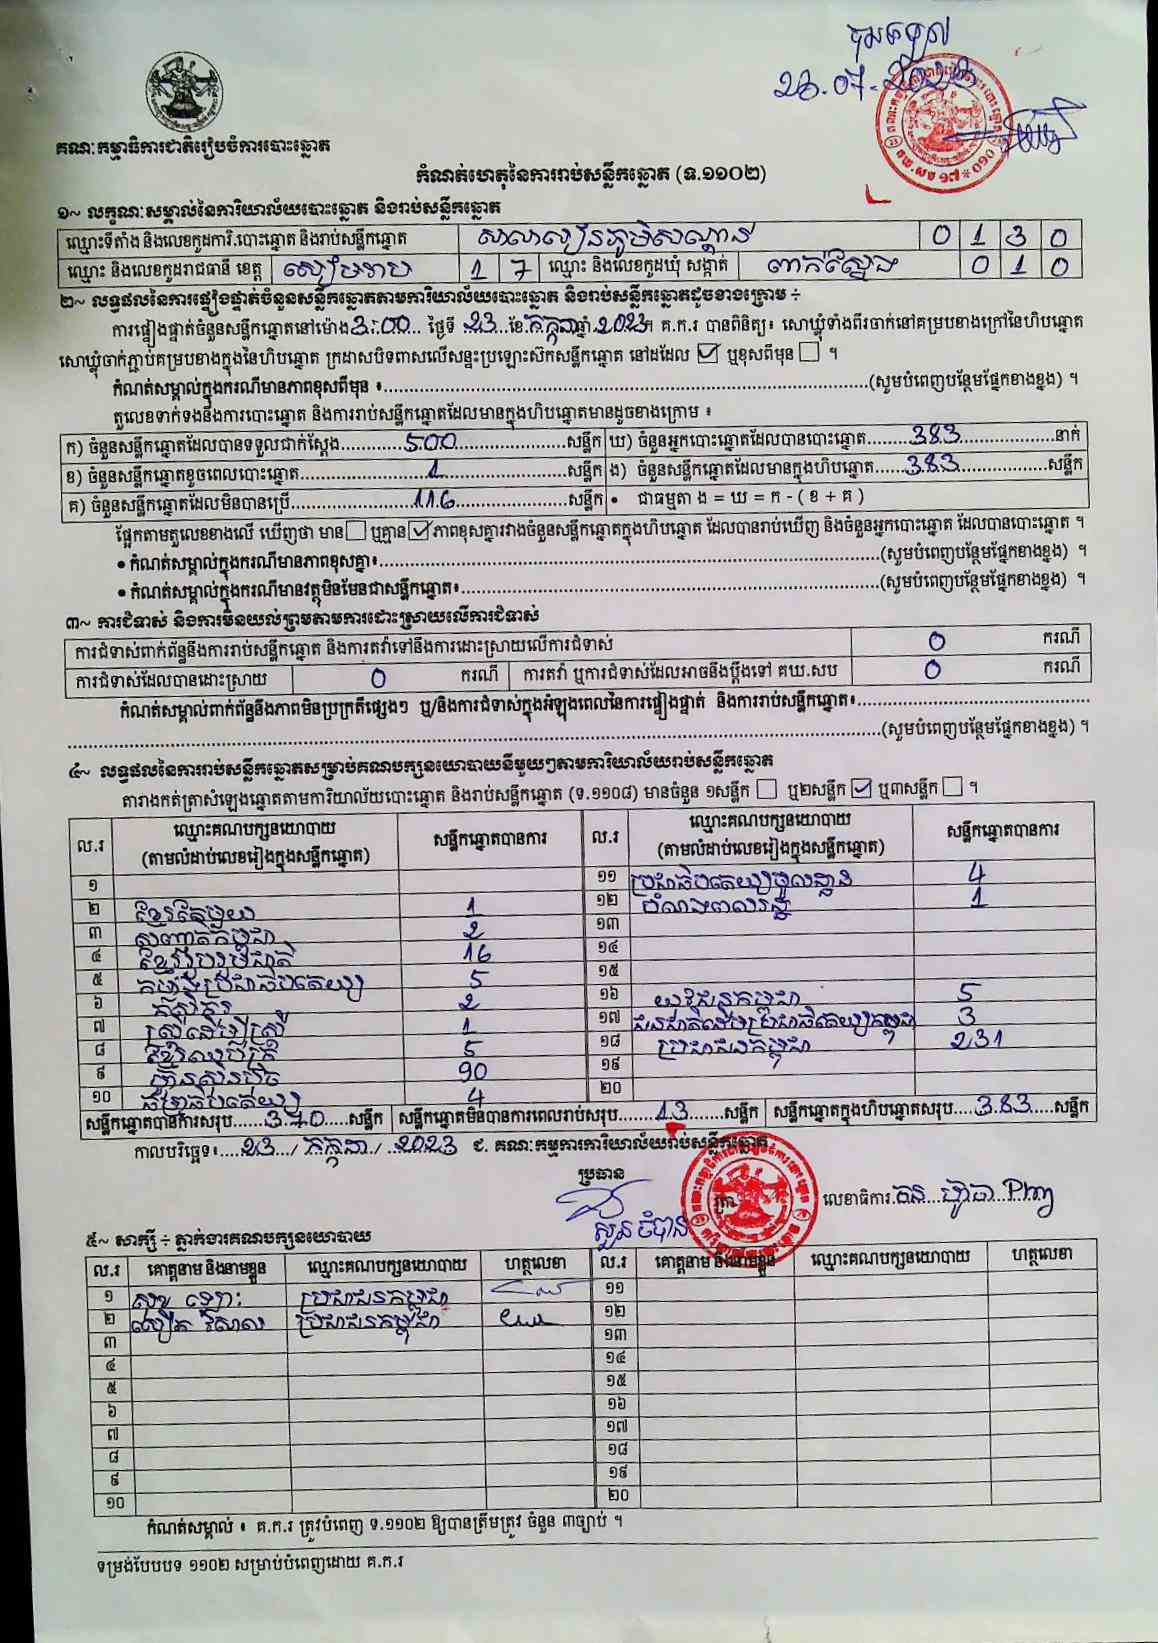 26.07.2023
គណៈកម្មាធិការជាតិរៀបចំការបោះឆ្នោត
កំណត់ហេតុនៃការរាប់សន្លឹកឆ្នោត (ទ.១១០២)
១~ លក្ខណៈសម្គាល់នៃការិយាល័យបោះឆ្នោត និងរាប់សន្លឹកឆ្នោត
ឈ្មោះទីតាំង និងលេខកូដការិ.បោះឆ្នោត និងរាប់សន្លឹកឆ្នោត សាលារៀនភូមិសណ្តាន់ 0 1 3 0
ឈ្មោះ និងលេខកូដរាជធានី ខេត្ត សៀមរាប 1 7 ឈ្មោះ និងលេខកូដឃុំ សង្កាត់ ពាក់ស្នែង 0 1 0
២~ លទ្ធផលនៃការផ្ទៀងផ្ទាត់ចំនួនសន្លឹកឆ្នោតតាមការិយាល័យបោះឆ្នោត និងរាប់សន្លឹកឆ្នោតដូចខាងក្រោម ÷
ការផ្ទៀងផ្ទាត់ចំនួនសន្លឹកឆ្នោតនៅម៉ោង 3:00 ថ្ងៃទី 23 ខែ កក្កដា ឆ្នាំ 2023។ គ.ក.រ បានពិនិត្យ៖ សោឃ្លុំទាំងពីរចាក់នៅគម្របខាងក្រៅនៃហិបឆ្នោត
សោឃ្លុំចាក់ភ្ជាប់គម្របខាងក្នុងនៃហិបឆ្នោត ក្រដាសបិទពាសលើសន្ទះប្រឡោះស៊កសន្លឹកឆ្នោត នៅដដែល ☑ ឬខុសពីមុន ☐ ។
កំណត់សម្គាល់ក្នុងករណីមានភាពខុសពីមុន ៖ (សូមបំពេញបន្ថែមផ្នែកខាងខ្នង) ។
តួលេខទាក់ទងនឹងការបោះឆ្នោត និងការរាប់សន្លឹកឆ្នោតដែលមានក្នុងហិបឆ្នោតមានដូចខាងក្រោម ៖
ក) ចំនួនសន្លឹកឆ្នោតដែលបានទទួលជាក់ស្តែង 500 សន្លឹក ឃ) ចំនួនអ្នកបោះឆ្នោតដែលបានបោះឆ្នោត 383 នាក់
ខ) ចំនួនសន្លឹកឆ្នោតខូចពេលបោះឆ្នោត 1 សន្លឹក ង) ចំនួនសន្លឹកឆ្នោតដែលមានក្នុងហិបឆ្នោត 383 សន្លឹក
គ) ចំនួនសន្លឹកឆ្នោតដែលមិនបានប្រើ 116 សន្លឹក • ជាធម្មតា ង = ឃ = ក - ( ខ + គ )
ផ្អែកតាមតួលេខខាងលើ ឃើញថា មាន ☐ ឬគ្មាន ☑ ភាពខុសគ្នារវាងចំនួនសន្លឹកឆ្នោតក្នុងហិបឆ្នោត ដែលបានរាប់ឃើញ និងចំនួនអ្នកបោះឆ្នោត ដែលបានបោះឆ្នោត ។
• កំណត់សម្គាល់ក្នុងករណីមានភាពខុសគ្នា៖ (សូមបំពេញបន្ថែមផ្នែកខាងខ្នង) ។
• កំណត់សម្គាល់ក្នុងករណីមានវត្ថុមិនមែនជាសន្លឹកឆ្នោត៖ (សូមបំពេញបន្ថែមផ្នែកខាងខ្នង) ។
៣~ ការជំទាស់ និងការមិនយល់ព្រមតាមការដោះស្រាយលើការជំទាស់
ការជំទាស់ពាក់ព័ន្ធនឹងការរាប់សន្លឹកឆ្នោត និងការតវ៉ាទៅនឹងការដោះស្រាយលើការជំទាស់ 0 ករណី
ការជំទាស់ដែលបានដោះស្រាយ 0 ករណី ការតវ៉ា ឬការជំទាស់ដែលអាចនឹងប្តឹងទៅ គឃ.សប 0 ករណី
កំណត់សម្គាល់ពាក់ព័ន្ធនឹងភាពមិនប្រក្រតីផ្សេងៗ ឬ/និងការជំទាស់ក្នុងអំឡុងពេលនៃការផ្ទៀងផ្ទាត់ និងការរាប់សន្លឹកឆ្នោត៖
(សូមបំពេញបន្ថែមផ្នែកខាងខ្នង) ។
៤~ លទ្ធផលនៃការរាប់សន្លឹកឆ្នោតសម្រាប់គណបក្សនយោបាយនីមួយៗតាមការិយាល័យរាប់សន្លឹកឆ្នោត
តារាងកត់ត្រាសំឡេងឆ្នោតតាមការិយាល័យបោះឆ្នោត និងរាប់សន្លឹកឆ្នោត (ទ.១១០៨) មានចំនួន ១សន្លឹក ☐ ឬ២សន្លឹក ☑ ឬ៣សន្លឹក ☐ ។
ល.រ ឈ្មោះគណបក្សនយោបាយ (តាមលំដាប់លេខរៀងក្នុងសន្លឹកឆ្នោត) សន្លឹកឆ្នោតបានការ ល.រ ឈ្មោះគណបក្សនយោបាយ (តាមលំដាប់លេខរៀងក្នុងសន្លឹកឆ្នោត) សន្លឹកឆ្នោតបានការ
១ ១១ ប្រជាធិបតេយ្យមូលដ្ឋាន 4
២ ខ្មែរតែមួយ 1 ១២ 1
៣ សញ្ជាតិកម្ពុជា 2 ១៣
៤ ខ្មែររួបរួមជាតិ 16 ១៤
៥ កម្លាំងប្រជាធិបតេយ្យ 5 ១៥
៦ កសិករ 2 ១៦ យុវជនកម្ពុជា 5
៧ ស្ត្រីដើម្បីស្ត្រី 1 ១៧ ជនជាតិដើមប្រជាធិបតេយ្យកម្ពុជា 3
៨ ខ្មែរឈប់ក្រ 5 ១៨ ប្រជាជនកម្ពុជា 231
៩ ហ្វ៊ុនស៊ិនប៉ិច 90 ១៩
១០ ធម្មាធិបតេយ្យ 4 ២០
សន្លឹកឆ្នោតបានការសរុប 370 សន្លឹក សន្លឹកឆ្នោតមិនបានការពេលរាប់សរុប 13 សន្លឹក សន្លឹកឆ្នោតក្នុងហិបឆ្នោតសរុប 383 សន្លឹក
កាលបរិច្ឆេទ៖ 23 / កក្កដា / 2023 ជ. គណៈកម្មការការិយាល័យរាប់សន្លឹកឆ្នោត
ប្រធាន
លេខាធិការ
សួន ចំបាន់
៥~ សាក្សី ÷ ភ្នាក់ងារគណបក្សនយោបាយ
ល.រ គោត្តនាម និងនាមខ្លួន ឈ្មោះគណបក្សនយោបាយ ហត្ថលេខា ល.រ គោត្តនាម និងនាមខ្លួន ឈ្មោះគណបក្សនយោបាយ ហត្ថលេខា
១ ប្រជាជនកម្ពុជា ១១
២ ប្រជាជនកម្ពុជា ១២
៣ ១៣
៤ ១៤
៥ ១៥
៦ ១៦
៧ ១៧
៨ ១៨
៩ ១៩
១០ ២០
កំណត់សម្គាល់ ៖ គ.ក.រ ត្រូវបំពេញ ទ.១១០២ ឱ្យបានត្រឹមត្រូវ ចំនួន ៣ច្បាប់ ។
ទម្រង់បែបបទ ១១០២ សម្រាប់បំពេញដោយ គ.ក.រ